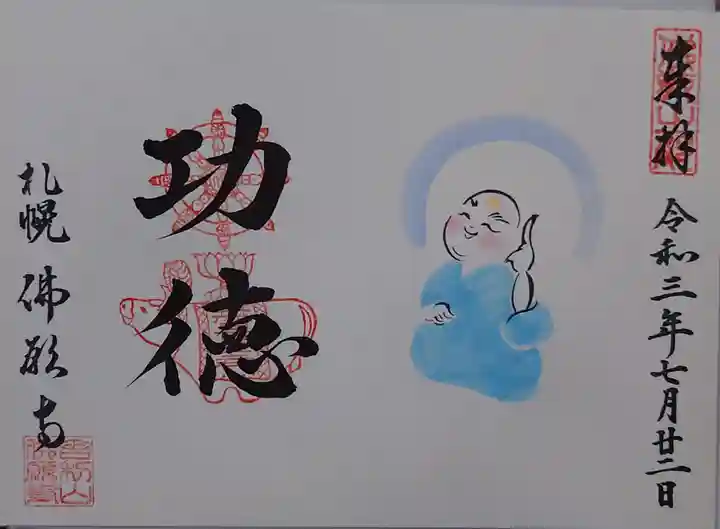 来拝
令和三年七月廿二日
功徳
札幌 佛願寺